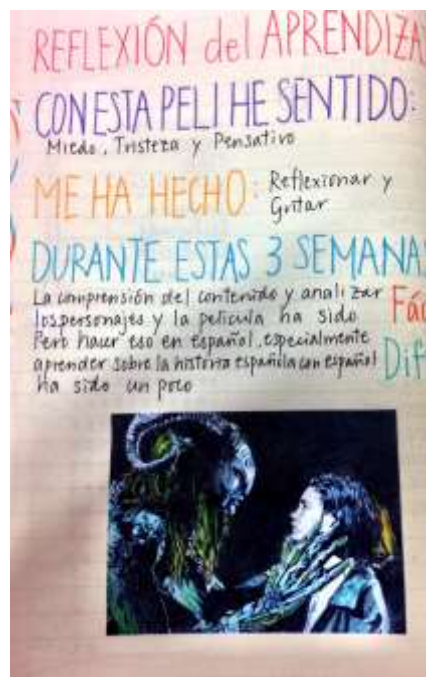 REFLEXIÓN del APRENDIZA
CON ESTA PELI HE SENTIDO:
Miedo, Tristeza y Pensativo
ME HA HECHO: Reflexionar y
Gritar
DURANTE ESTAS 3 SEMANA
La comprensión del contenido y analizar
los personajes y la película ha sido Fác
Pero hacer eso en español, especialmente
aprender sobre la historia española con español Dif
ha sido un poco